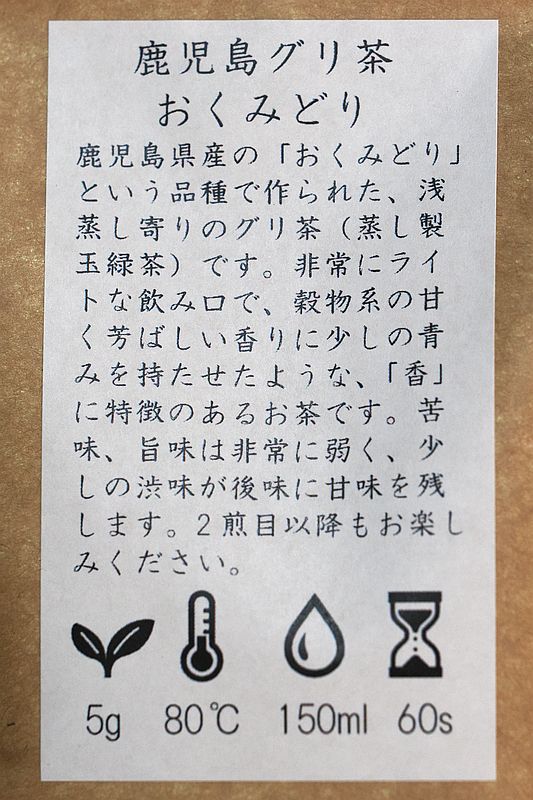 鹿児島グリ茶
おくみどり
鹿児島県産の「おくみどり」
という品種で作られた、浅
蒸し寄りのグリ茶（蒸し製
玉緑茶）です。非常にライ
トな飲み口で、穀物系の甘
く芳ばしい香りに少しの青
みを持たせたような、「香」
に特徴のあるお茶です。苦
味、旨味は非常に弱く、少
しの渋味が後味に甘味を残
します。2煎目以降もお楽し
みください。
5g 80℃ 150ml 60s